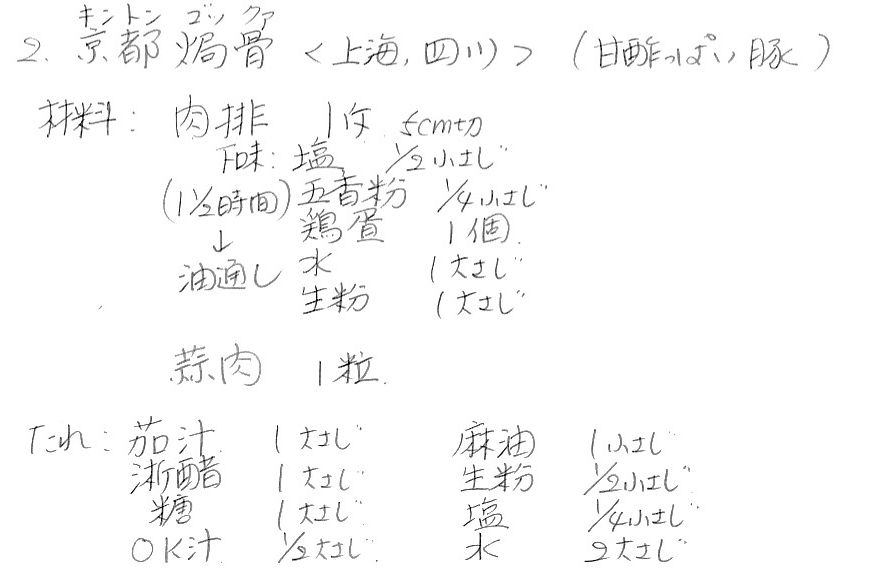 キントン ゴッ クァ
2. 京都焗骨 <上海,四川> (甘酢っぱい豚)
材料: 肉排 1枚 5cm切
下味: 塩 1/2小さじ
(1 1/2時間) 五香粉 1/4小さじ
↓ 鶏蛋 1個
油通し 水 1大さじ
生粉 1大さじ
蒜肉 1粒
たれ: 茄汁 1大さじ 麻油 1小さじ
淅醋 1大さじ 生粉 1/2小さじ
糖 1大さじ 塩 1/4小さじ
OK汁 1/2大さじ 水 2大さじ